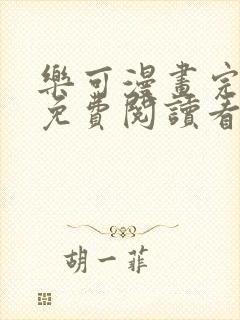 樂可漫畫完
免費閱讀看
胡一菲